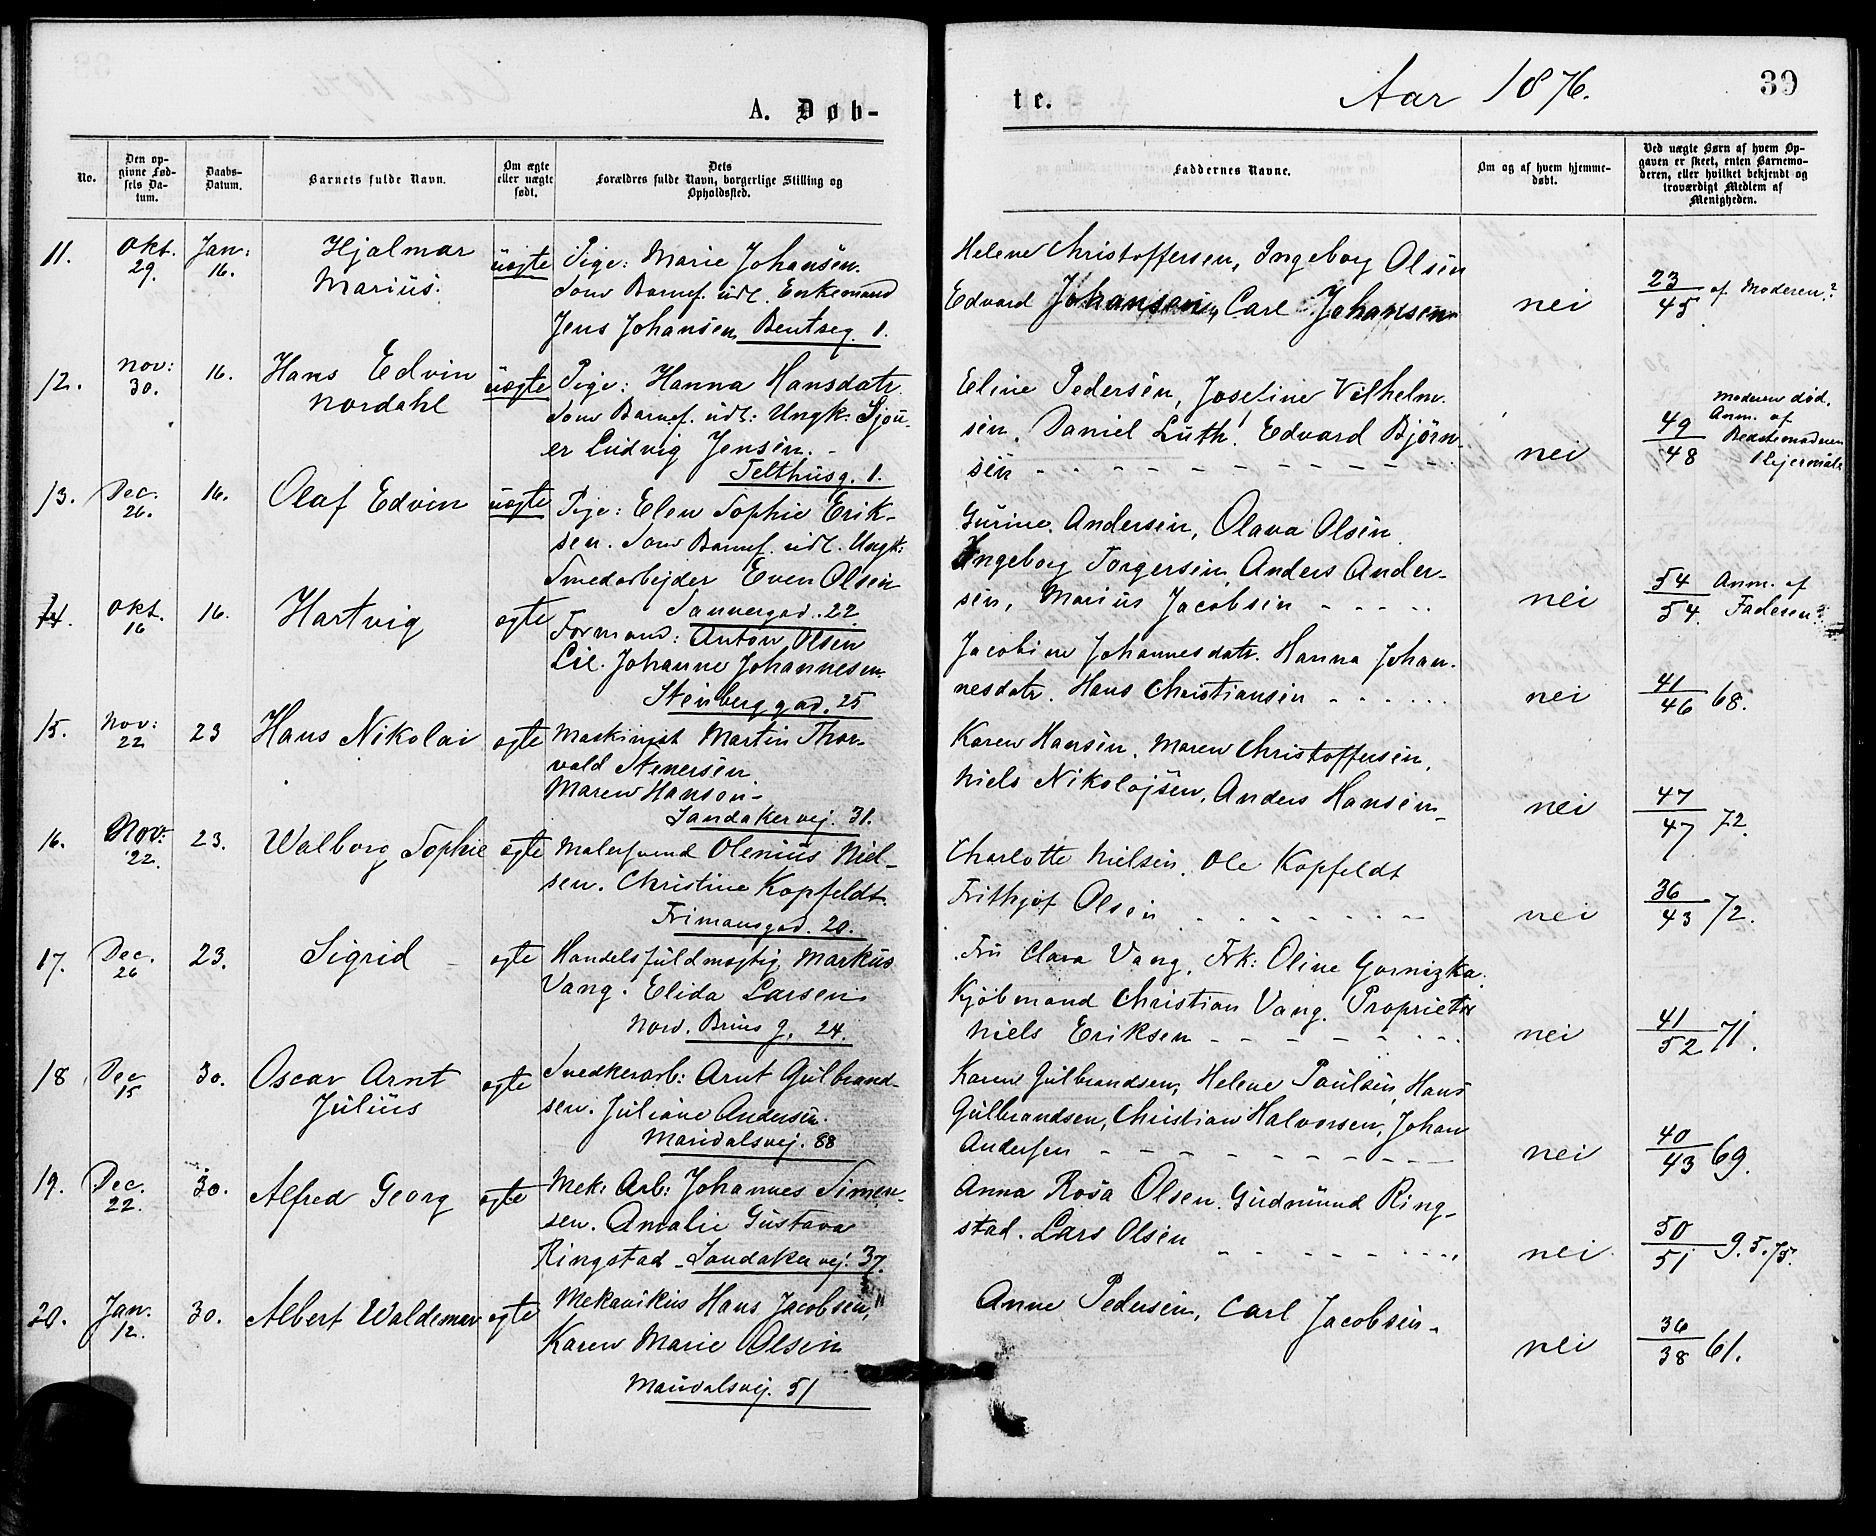 A. Døb-
te.
Aar 1876.
39
No.
Den op-
givne Fød-
sels Da-
tum.
Daabs-
Datum.
Barnets fulde Navn.
Om ægte
eller uægte
født.
Dets
Forældres fulde Navn, borgerlige Stilling og
Opholdssted.
Faddernes Navne.
Om og af hvem hjemme-
døbt.
Ved uægte Børn af hvem Op-
gaven er skeet, enten Barnemo-
deren, eller hvilket bekjendt og
troværdigt Medlem af
Menigheden.
11. Okt. 29. Jan: 16. Hjalmar
Marius.
uægte
Pige: Marie Johansen.
Som Barnef. udl. Enkemand
Jens Johansen, Bentseg. 1.
Helene Christoffersen, Ingeborg Olsen
Edvard Johansen, Carl Johansen
nei
23/45 af Moderen?
12. Nov: 30. 16. Hans Edvin
Nordahl
uægte
Pige: Hanna Hansdatr.
Som Barnef. udl: Ungk: Sjou-
er Ludvig Jensen. -
Telthusg. 1.
Eline Pedersen, Josefine Vilhelm-
sen, Daniel Luth! Edvard Bjørn-
sen
nei
49/48 Moderen død.
Anm. af
13. Dec. 26. 16. Olaf Edvin
uægte
Pige: Elen Sophie Erik-
sen. Som Barnef. udl. Ungk:
Smedarbejder Even Olsen
Sannergad. 22.
Gurine Andersen, Olava Olsen
Ingeborg Torgersen, Anders Ander-
sen, Marius Jacobsen
nei
54/54. Anm. af
Faderen?
14. Okt. 16 16. Hartvig
ægte
Formand: Anton Olsen
Lie. Johanne Johannesen
Stenberggad. 25
Jacobine Johannesdatr. Hanna Johan-
nesdatr. Hans Christiansen
nei
41/46 68.
15. Nov: 22 23 Hans Nikolai
ægte
Maskinist Martin Thor-
vald Stenersen.
Maren Hansen-
Sandakervej. 31.
Karen Hansen, Maren Christoffersen,
Niels Nikolajsen, Anders Hansen-
nei
47/47 72.
16. Nov: 22. 23. Walborg Sophie
ægte
Malersvend Olenius Niel-
sen. Christine Kopfeldt.
Frimansgad. 20.
Charlotte Nielsen, Ole Kopfeldt
Frithjof Olsen
nei
36/43 72.
17. Dec. 26 23. Sigrid
ægte
Handelsfuldmægtig Markus
Vang. Elida Larsen
Nord. Brus g. 24.
Fru Clara Vang, Frk: Oline Gornizka.
Kjøbmand Christian Vang. Proprietær
Niels Eriksen
nei
41/52 71.
18 Dec 15 30. Oscar Arnt
Julius
ægte
Snedkerarb: Arnt Gulbrand-
sen. Juliane Andersen.
Maridalsvej. 88
Karen Gulbrandsen, Helene Paulsen, Hans
Gulbrandsen, Christian Halvorsen, Johan
Andersen
nei
40/43 69.
19. Dec. 22. 30. Alfred Georg
ægte
Mek: Arb: Johannes Simen-
sen. Amalie Gustava
Ringstad - Sandakervej. 37.
Anna Rosa Olsen. Gudmund Ring-
stad. Lars Olsen
nei.
50/51 9.5.75.
20. Jan. 12. 30. Albert Waldemar
ægte
Mekanikus Hans Jacobsen,
Karen Marie Olsen
Maridalsvej. 51
Anne Pedersen, Carl Jacobsen.
nei
36/38 61.